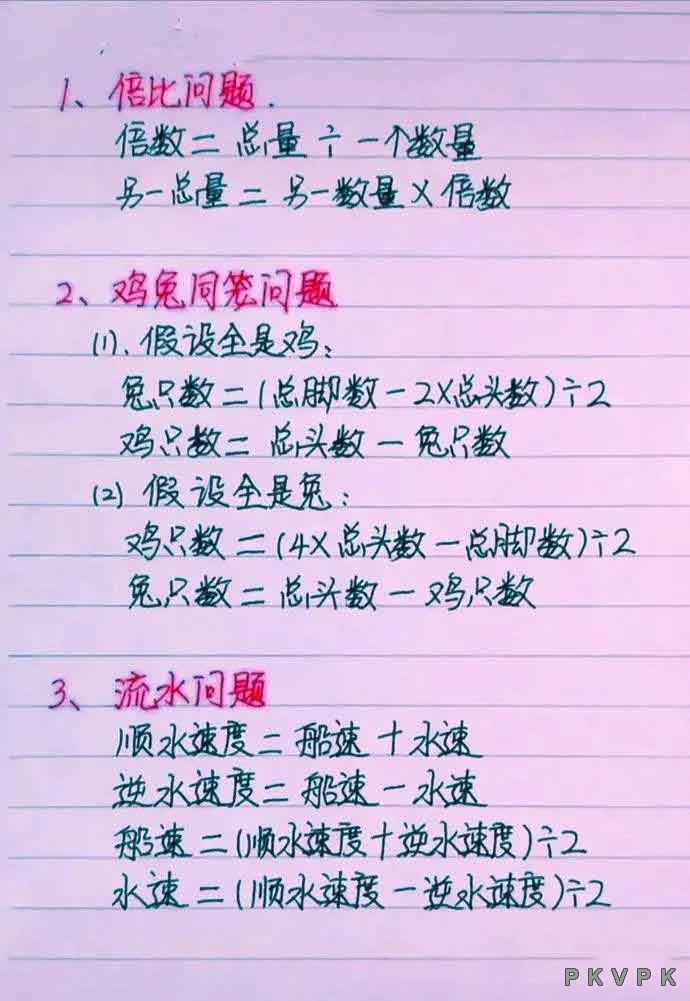 1、倍比问题.
倍数=总量÷一个数量
另一总量=另一数量×倍数
2、鸡兔同笼问题
(1).假设全是鸡:
兔只数=(总脚数-2×总头数)÷2
鸡只数=总头数-兔只数
(2)假设全是兔:
鸡只数=(4×总头数-总脚数)÷2
兔只数=总头数-鸡只数
3、流水问题
顺水速度=船速+水速
逆水速度=船速-水速
船速=(顺水速度+逆水速度)÷2
水速=(顺水速度-逆水速度)÷2
PKVPK